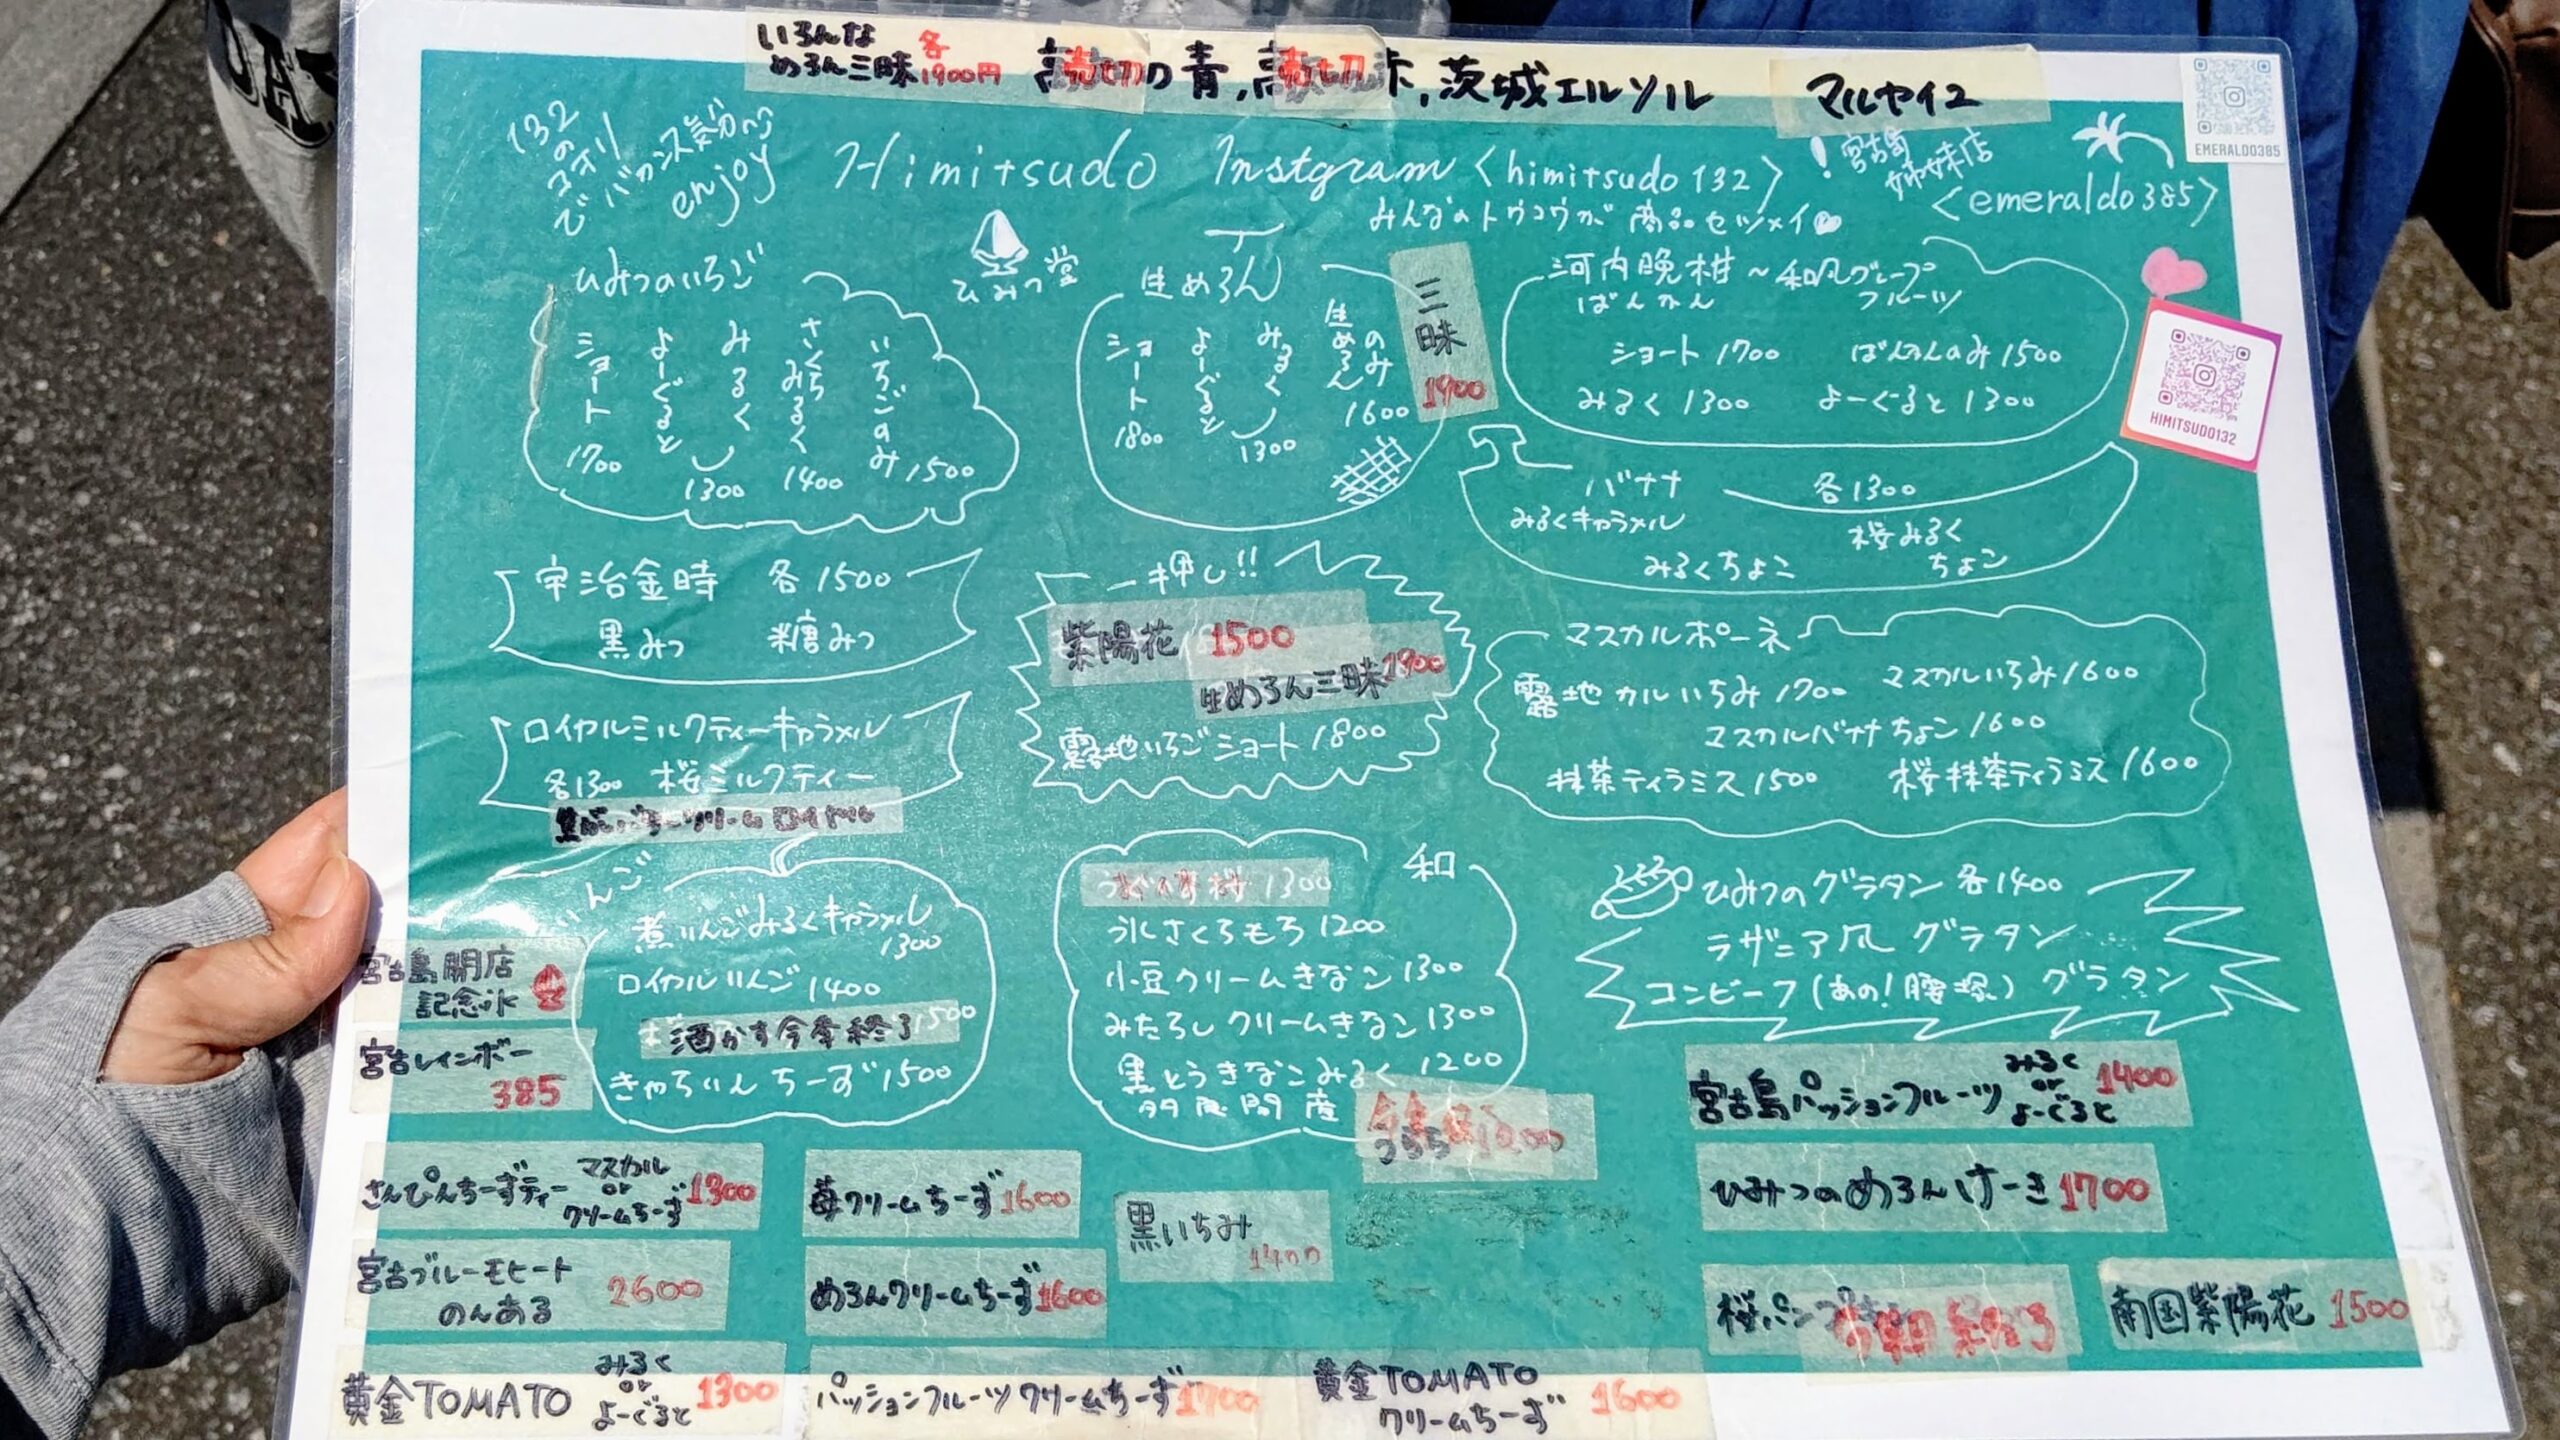 いろんな
めろん三昧 各1900円
の青, 茨城エルソル
マルセイユ
EMERALDO385
132
の
コオリ
で バカンス気分♪
enjoy
Himitsudo Instgram <himitsudo132>
みんなのトウコウが 商品セツメイ
! 宮古島
姉妹店
<emeraldo385>
ひみつ堂
ひみつのいちご
ショート 1700
よーぐると
みるく
1300
さくらみるく 1400
いちごのみ 1500
生めろん
ショート 1800
よーぐると
みるく
1300
生めろんのみ 1600
三昧
1900
河内晩柑 ~ 和風グレープ
ばんかん フルーツ
ショート 1700 ばんかんのみ 1500
みるく 1300 よーぐると 1300
HIMITSUDO132
バナナ 各1300
みるくキャラメル
みるくちょこ
桜みるく
ちょこ
宇治金時 各1500
黒みつ 糖みつ
一押し!!
紫陽花 1500
生めろん三昧 1900
露地いちごショート 1800
マスカルポーネ
露地 カルいちみ 1700 マスカルいちみ 1600
マスカルバナナちょこ 1600
抹茶ティラミス 1500 桜抹茶ティラミス 1600
ロイヤルミルクティーキャラメル
各1300 桜ミルクティー
りんご
煮りんごみるくキャラメル
1300
ロイヤルりんご 1400
酒かす今季終了 1500
きゃらりんちーず 1500
和
1300
氷しさくらもち 1200
小豆クリームきなこ 1300
みたらしクリームきなこ 1300
黒とうきなこみるく 1200
多良間産
ひみつのグラタン 各1400
ラザニア風 グラタン
コンビーフ(あの!腰塚) グラタン
宮古島開店
記念氷
宮古レインボー
385
宮古島パッションフルーツ みるく or よーぐると 1400
ひみつのめろんけーき 1700
さんぴんちーずティー マスカル or クリームちーず 1300
苺クリームちーず 1600
黒いちみ
1400
宮古ブルーモヒート
のんある 2600
めろんクリームちーず 1600
南国紫陽花 1500
黄金TOMATO みるく or よーぐると 1300
パッションフルーツクリームちーず 1700
黄金TOMATO
クリームちーず 1600